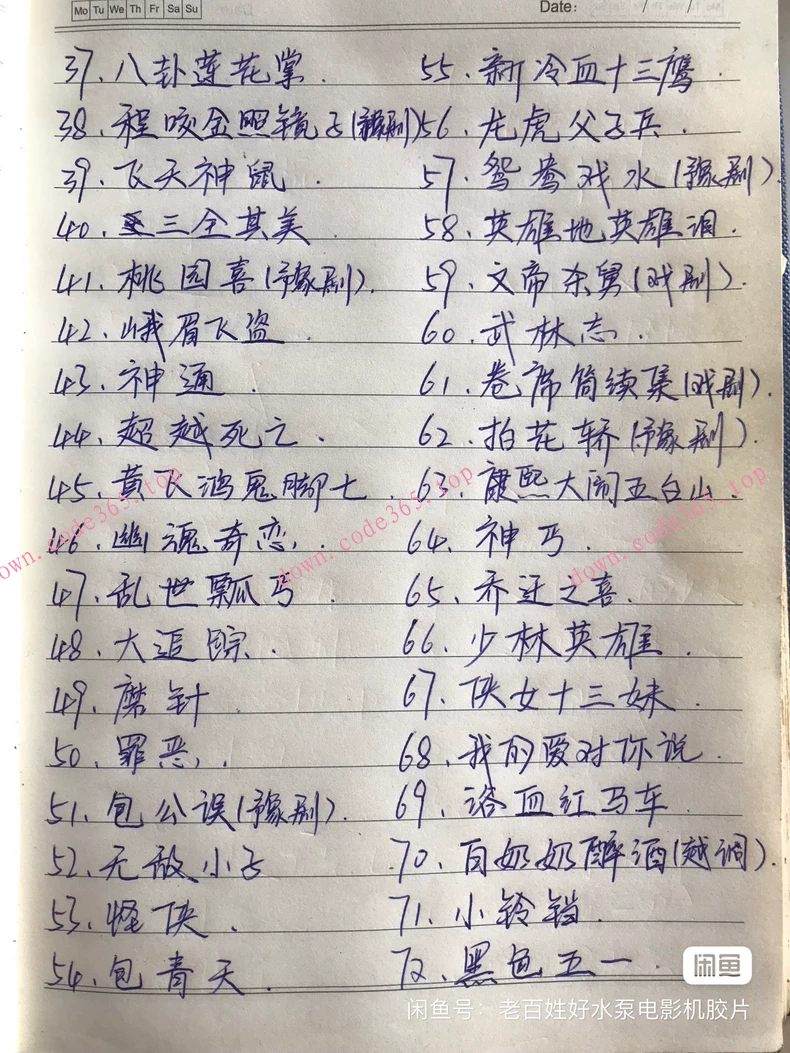 Mo Tu We Th Fr Sa Su
Date: / /
37、八卦莲花掌.
38、程咬金照镜子(豫剧)
39、飞天神鼠.
40、三全其美
41、桃园喜(豫剧).
42、峨眉飞盗.
43、神通.
44、超越死亡.
45、黄飞鸿鬼脚七
46、幽魂奇恋.
47、乱世飘丐
48、大追踪.
49、磨针
50、罪恶.
51、包公误(豫剧).
52、无敌小子
53、怪侠.
54、包青天.
55、新冷血十三鹰
56、龙虎父子兵.
57、鸳鸯戏水(豫剧).
58、英雄地英雄泪.
59、文帝杀舅(戏剧).
60、武林志.
61、卷席筒续集(戏剧).
62、拍花轿(豫剧).
63、康熙大闹五台山.
64、神丐.
65、乔迁之喜.
66、少林英雄.
67、侠女十三妹.
68、我的爱对你说.
69、浴血红马车
70、百奶奶醉酒(越调).
71、小铃铛.
72、黑色五一.
down.code365.top
down.code365.top
down.code365.top
闲鱼
闲鱼号：老百姓好水泵电影机胶片